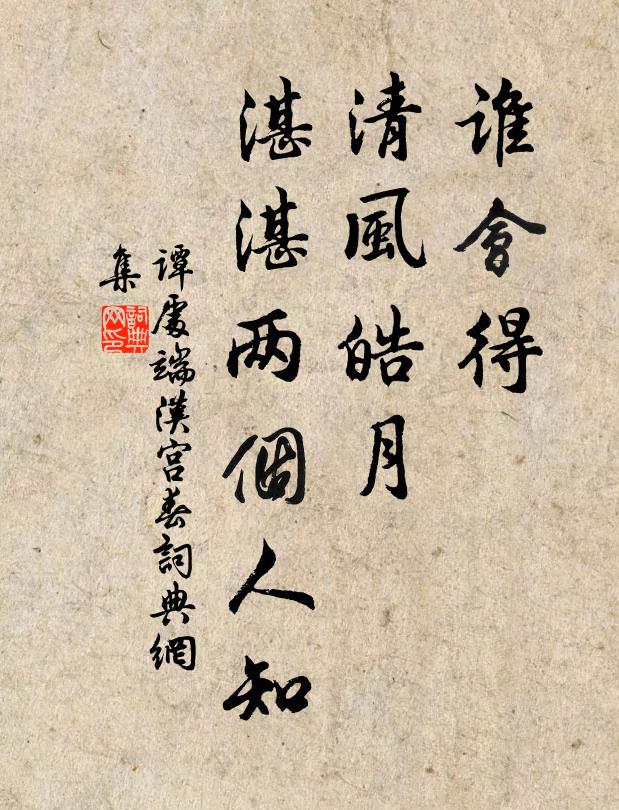 誰會得
清風皓月
湛湛两個人知
譚處端漢宮春詞典網
集
詞典
网印